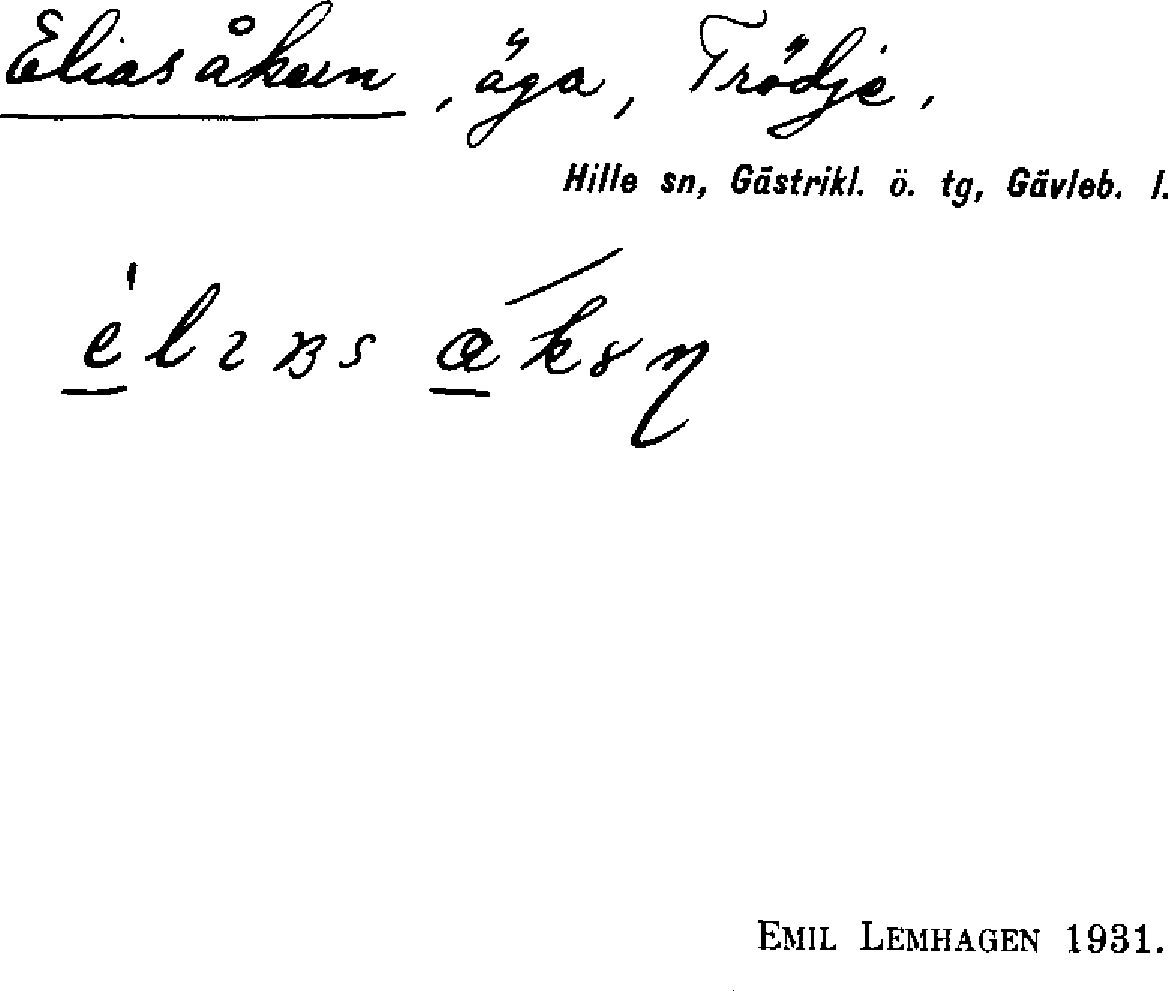 Eliasåkern, äga, Trödje,
Hille sn, Gästrikl. ö. tg, Gävleb. l.
EMIL LEMHAGEN 1931.